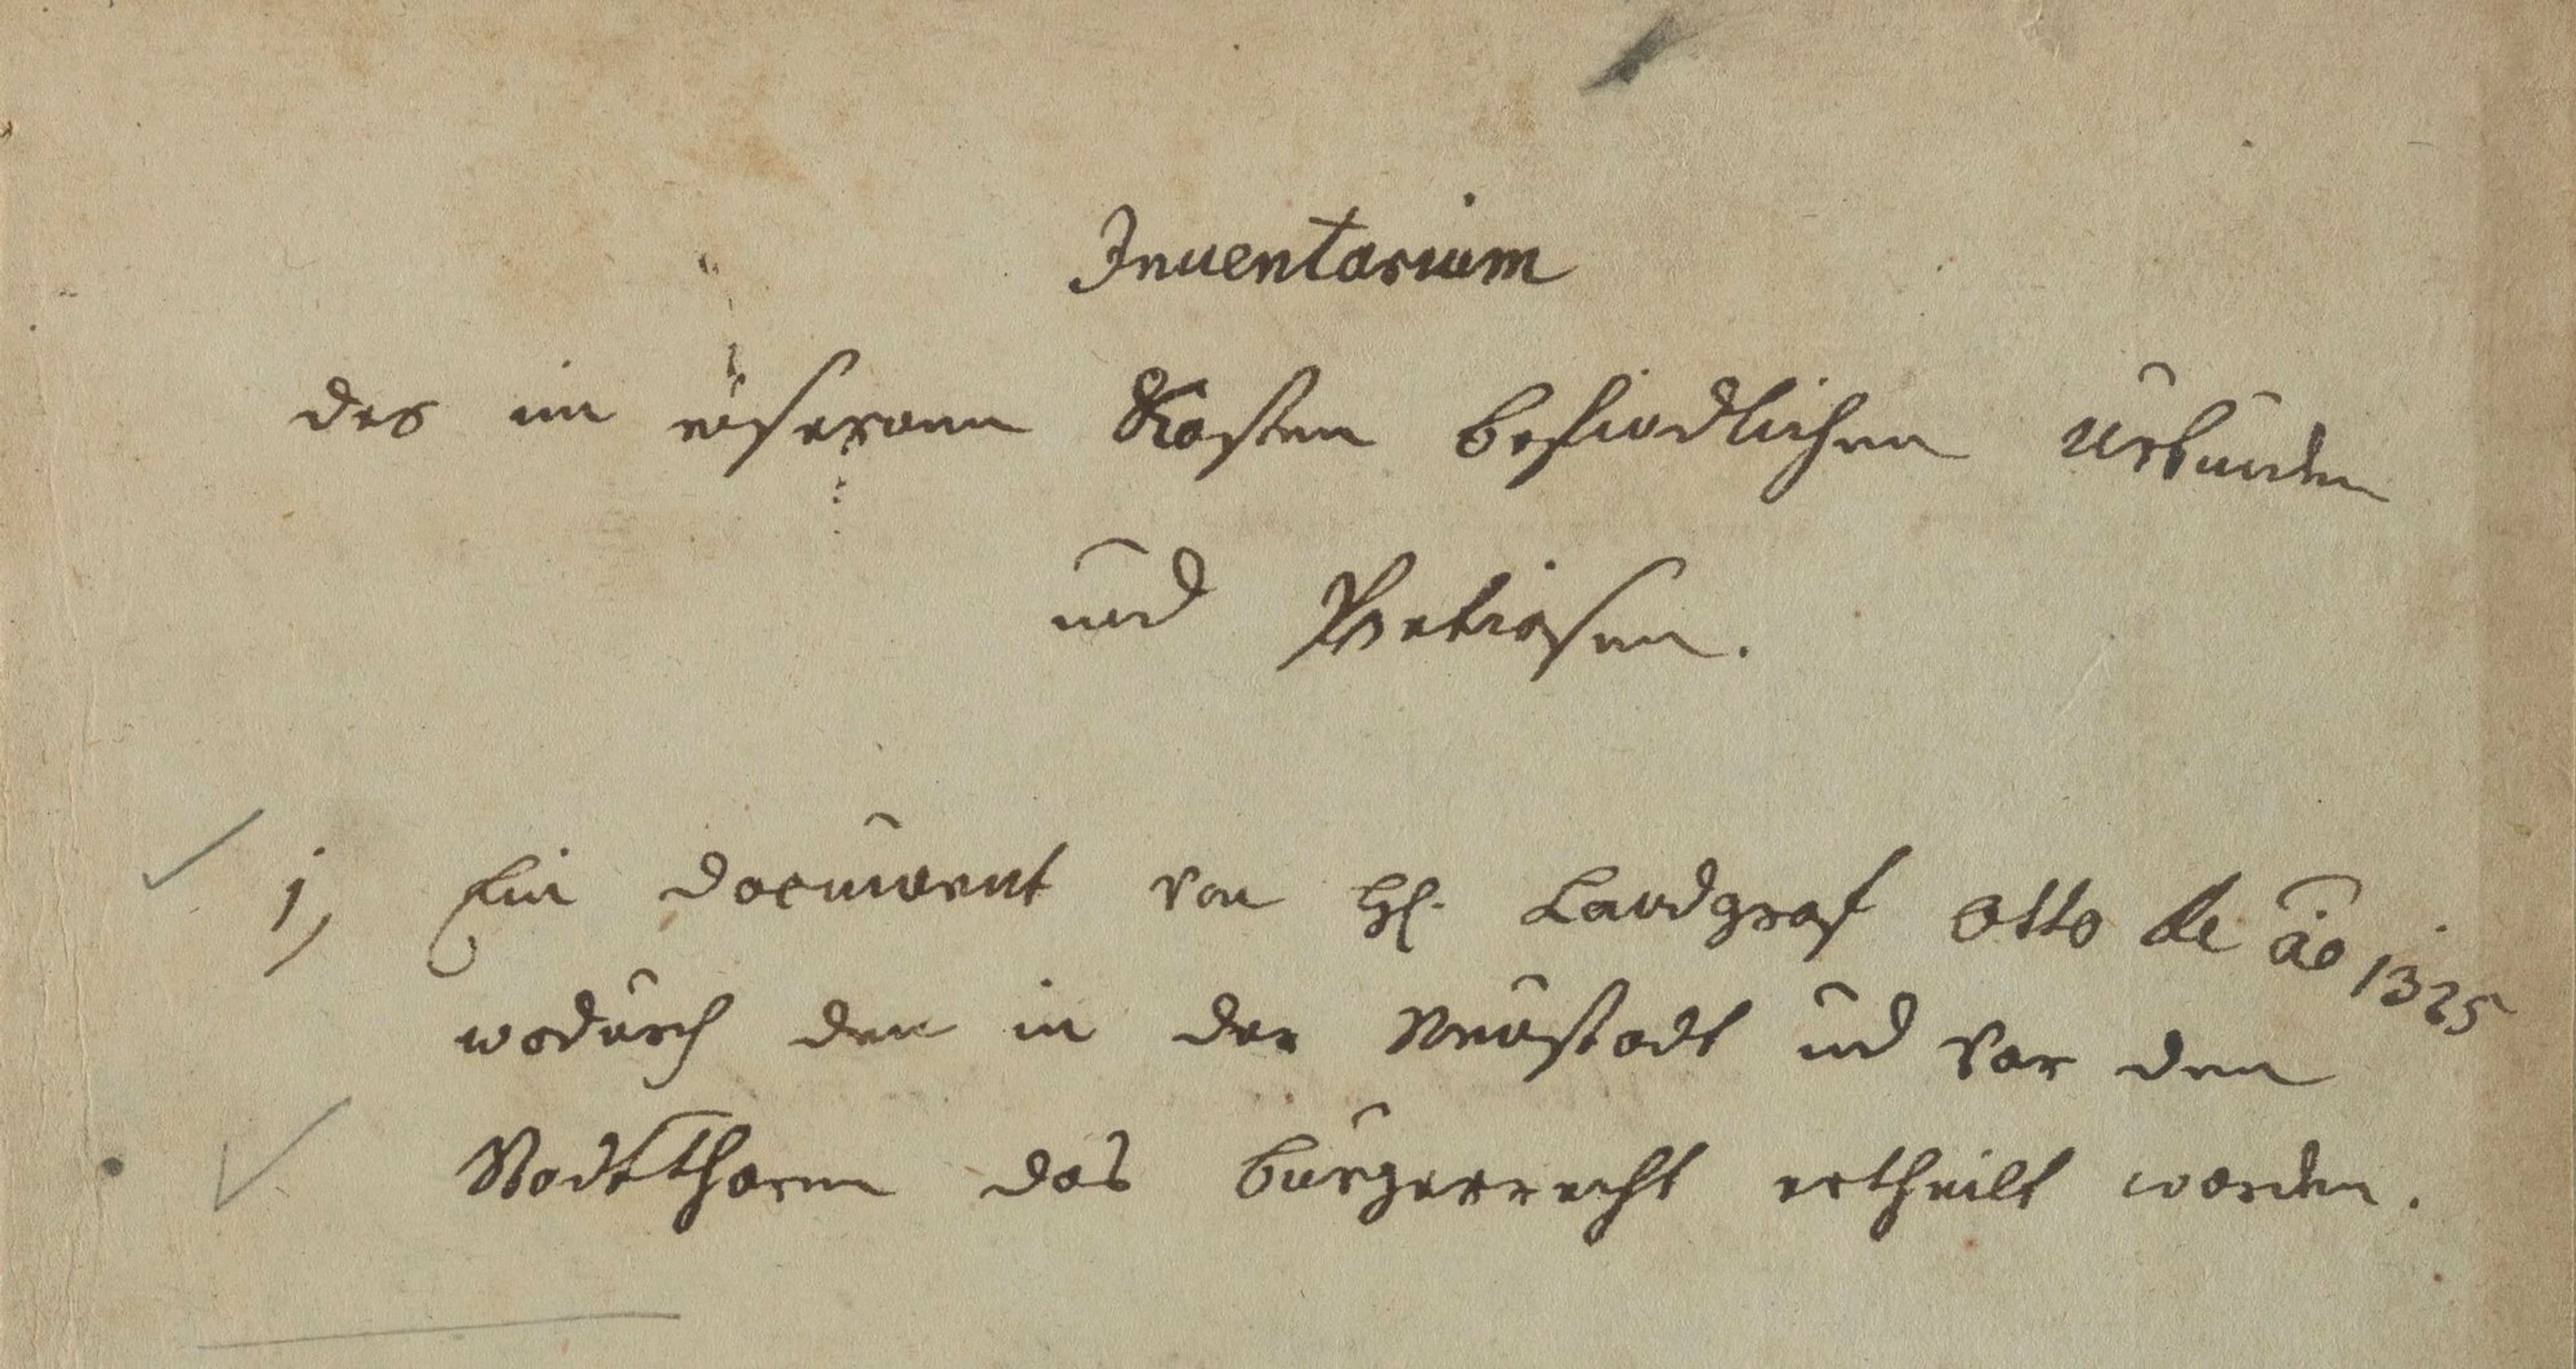 Inventarium
der im eisernen Kasten befindlichen Urkunden
und Pretiosen.
1) Ein Document von H. Landgraf Otto de ao 1325
wodurch den in der Neustadt und vor den
Stadtthoren das Bürgerrecht ertheilt worden.